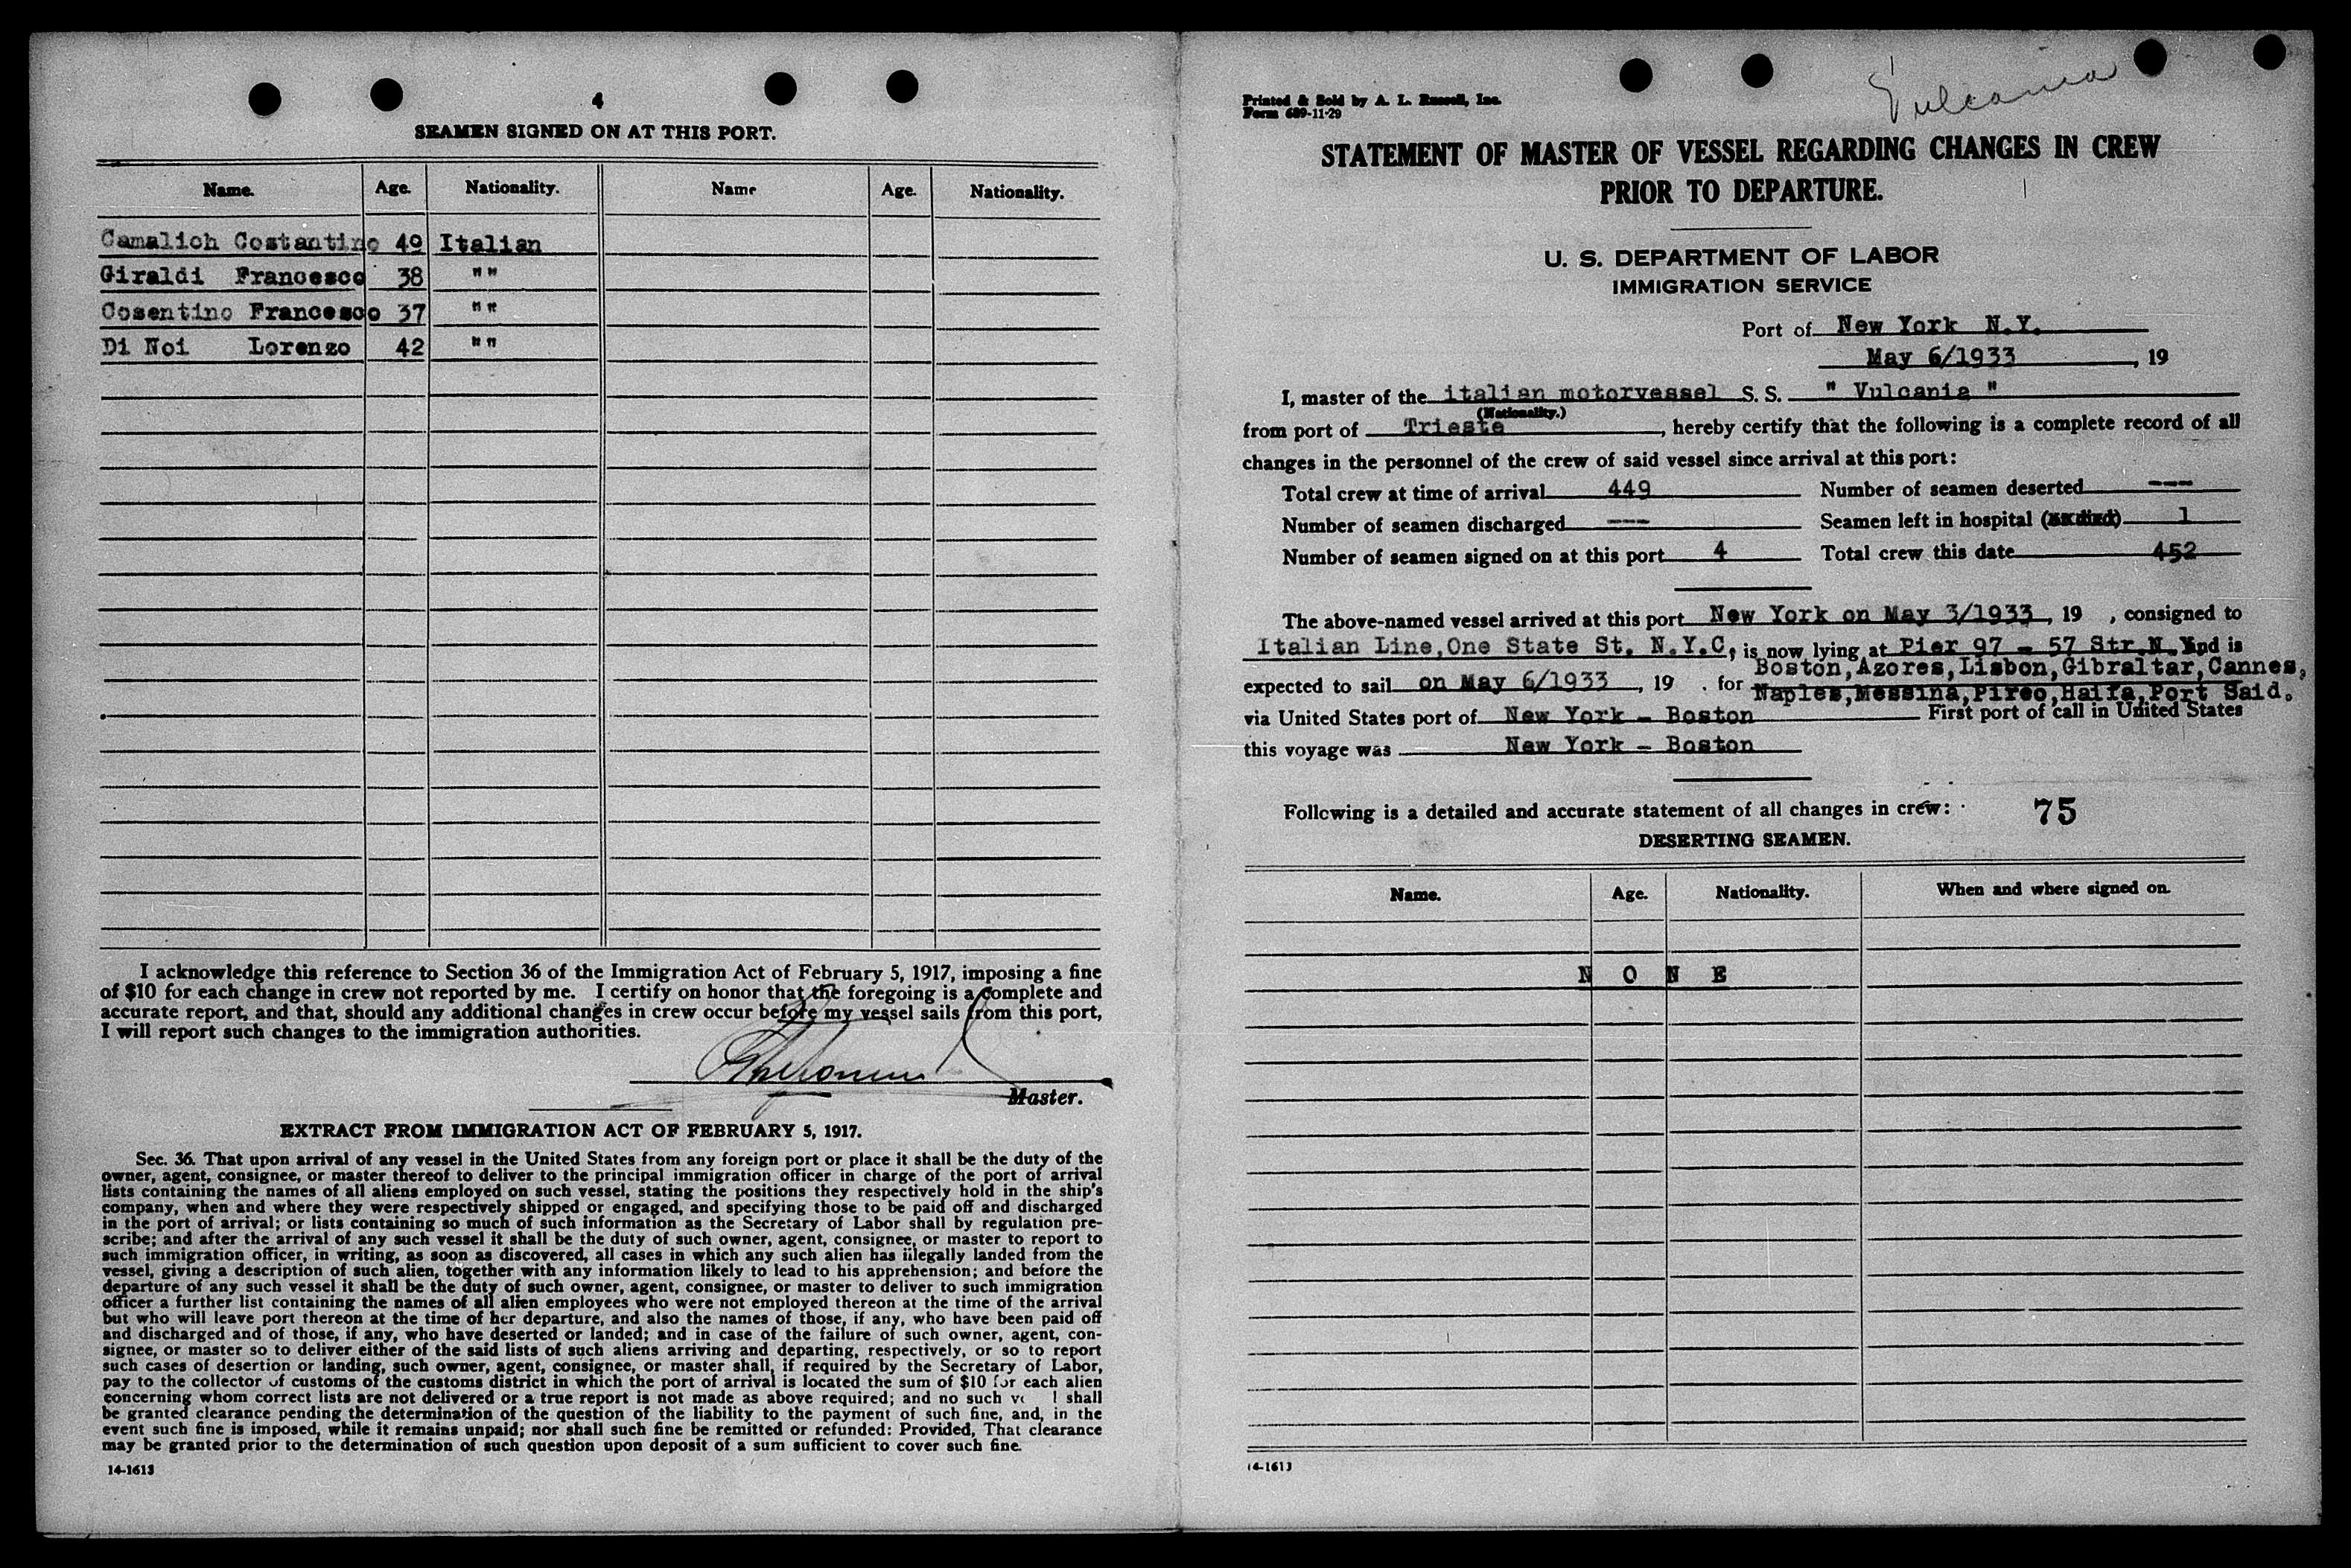 4
SEAMEN SIGNED ON AT THIS PORT.
Name. Age. Nationality. Name Age. Nationality.
Camalich Costantino 49 Italian
Giraldi Francesco 38 ""
Cosentino Francesco 37 ""
Di Noi Lorenzo 42 ""
I acknowledge this reference to Section 36 of the Immigration Act of February 5, 1917, imposing a fine
of $10 for each change in crew not reported by me. I certify on honor that the foregoing is a complete and
accurate report, and that, should any additional changes in crew occur before my vessel sails from this port,
I will report such changes to the immigration authorities.
Master.
EXTRACT FROM IMMIGRATION ACT OF FEBRUARY 5, 1917.
Sec. 36. That upon arrival of any vessel in the United States from any foreign port or place it shall be the duty of the
owner, agent, consignee, or master thereof to deliver to the principal immigration officer in charge of the port of arrival
lists containing the names of all aliens employed on such vessel, stating the positions they respectively hold in the ship's
company, when and where they were respectively shipped or engaged, and specifying those to be paid off and discharged
in the port of arrival; or lists containing so much of such information as the Secretary of Labor shall by regulation pre-
scribe; and after the arrival of any such vessel it shall be the duty of such owner, agent, consignee, or master to report to
such immigration officer, in writing, as soon as discovered, all cases in which any such alien has illegally landed from the
vessel, giving a description of such alien, together with any information likely to lead to his apprehension; and before the
departure of any such vessel it shall be the duty of such owner, agent, consignee, or master to deliver to such immigration
officer a further list containing the names of all alien employees who were not employed thereon at the time of the arrival
but who will leave port thereon at the time of her departure, and also the names of those, if any, who have been paid off
and discharged and of those, if any, who have deserted or landed; and in case of the failure of such owner, agent, con-
signee, or master so to deliver either of the said lists of such aliens arriving and departing, respectively, or so to report
such cases of desertion or landing, such owner, agent, consignee, or master shall, if required by the Secretary of Labor,
pay to the collector of customs of the customs district in which the port of arrival is located the sum of $10 for each alien
concerning whom correct lists are not delivered or a true report is not made as above required; and no such v l shall
be granted clearance pending the determination of the question of the liability to the payment of such fine, and, in the
event such fine is imposed, while it remains unpaid; nor shall such fine be remitted or refunded: Provided, That clearance
may be granted prior to the determination of such question upon deposit of a sum sufficient to cover such fine.
14-1613
Vulcania
Printed & Sold by A. L. Russell, Inc.
Form 689-11-29
STATEMENT OF MASTER OF VESSEL REGARDING CHANGES IN CREW
PRIOR TO DEPARTURE.
U. S. DEPARTMENT OF LABOR
IMMIGRATION SERVICE
Port of New York N.Y.
May 6/1933, 19
I, master of the italian motorvessel S. S. " Vulcania "
(Nationality.)
from port of Trieste, hereby certify that the following is a complete record of all
changes in the personnel of the crew of said vessel since arrival at this port:
Total crew at time of arrival 449 Number of seamen deserted ---
Number of seamen discharged --- Seamen left in hospital 1
Number of seamen signed on at this port 4 Total crew this date 452
The above-named vessel arrived at this port New York on May 3/1933, 19 , consigned to
Italian Line,One State St. N.Y.C, is now lying at Pier 97 - 57 Str.N.Y and is
Boston,Azores,Lisbon,Gibraltar,Cannes,
expected to sail on May 6/1933, 19 . for Naples,Messina,Pireo,Haifa,Port Said.
via United States port of New York - Boston First port of call in United States
this voyage was New York - Boston
Following is a detailed and accurate statement of all changes in crew: 75
DESERTING SEAMEN.
Name. Age. Nationality. When and where signed on.
N O N E
14-1613